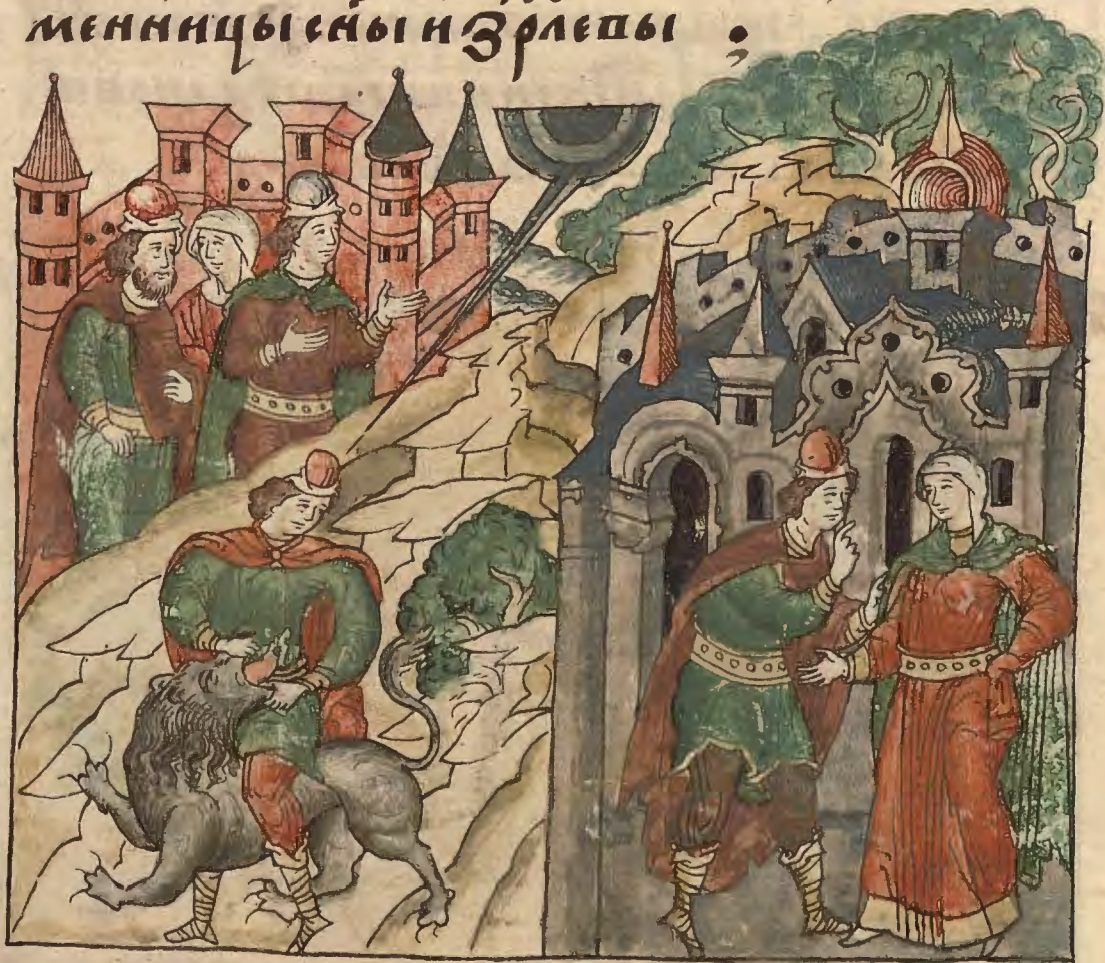 менницы сны изрлевы :